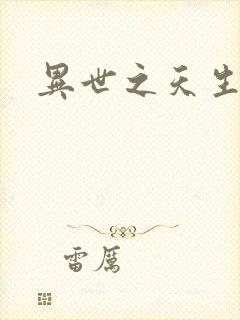 異世之天生
雷厲